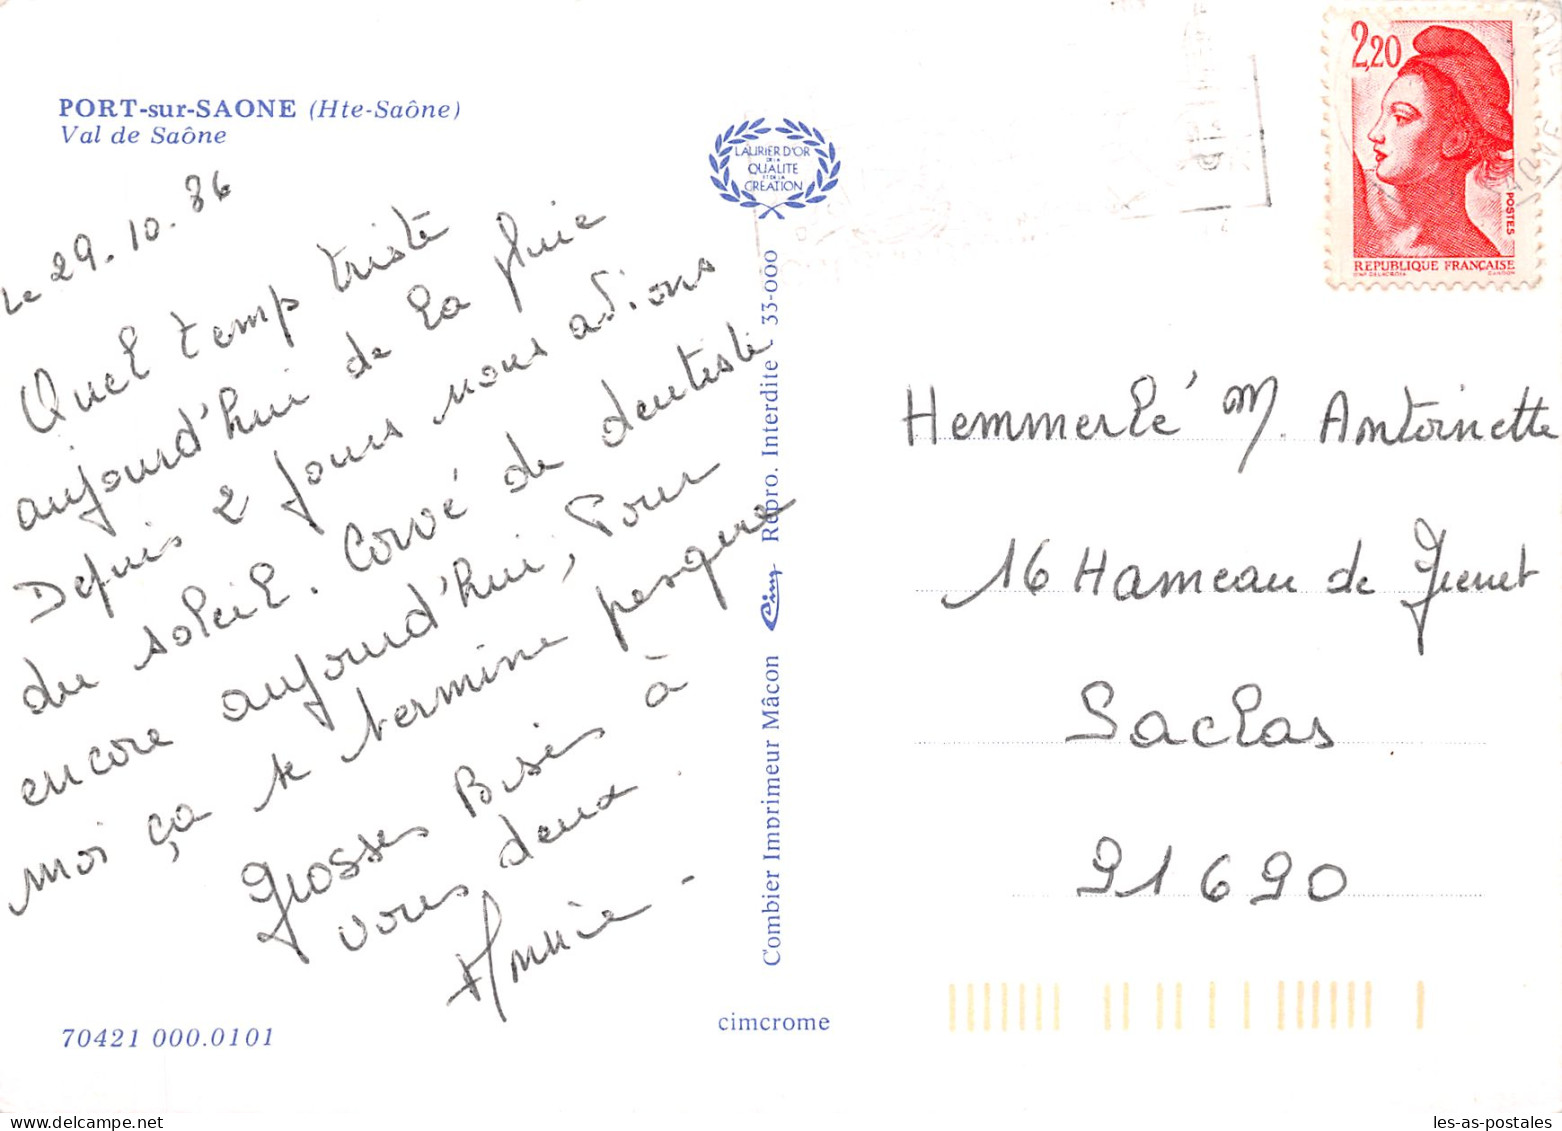 PORT-sur-SAONE (Hte-Saône)
Val de Saône
Le 29.10.86
Quel temp triste
aujourd'hui de la pluie
Depuis 2 jours nous avions
du soleil. Corvé de dentiste
encore aujourd'hui, Pour
moi ça se termine pesque
Grosses Bises à
vous deux.
Annie -
70421 000.0101
LAURIER D'OR
DE LA
QUALITE
ET DE LA
CREATION
Combier Imprimeur Mâcon Cim Repro. Interdite - 33-000
cimcrome
2,20
POSTES
REPUBLIQUE FRANÇAISE
D'AP. DELACROIX GANDON
Hemmerlé M. Antoinette
16 Hameau de
Saclas
91690
les-as-postales